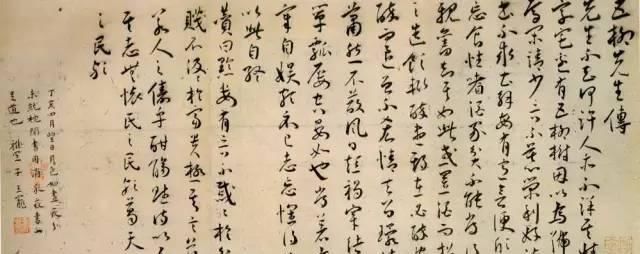 五柳先生傳
先生不知何許人亦不詳其姓
字宅邊有五柳樹因以為號
焉閑靖少言不慕榮利好讀
書不求甚解每有會意便欣
忘食性嗜酒家貧不能常得
親舊知其如此或置酒而招
之造飲輒盡期在必醉
醉而退曾不吝情去留環堵
蕭然不蔽風日短褐穿結
簞瓢屢空晏如也常著文
章自娛頗示己志忘懷得
以此自終
贊曰黔婁有言不戚戚於貧
賤不汲汲於富貴極其言茲
若人之儔乎酣觴賦詩以樂
其志無懷氏之民歟葛天
之民歟
丁亥四月
王寵